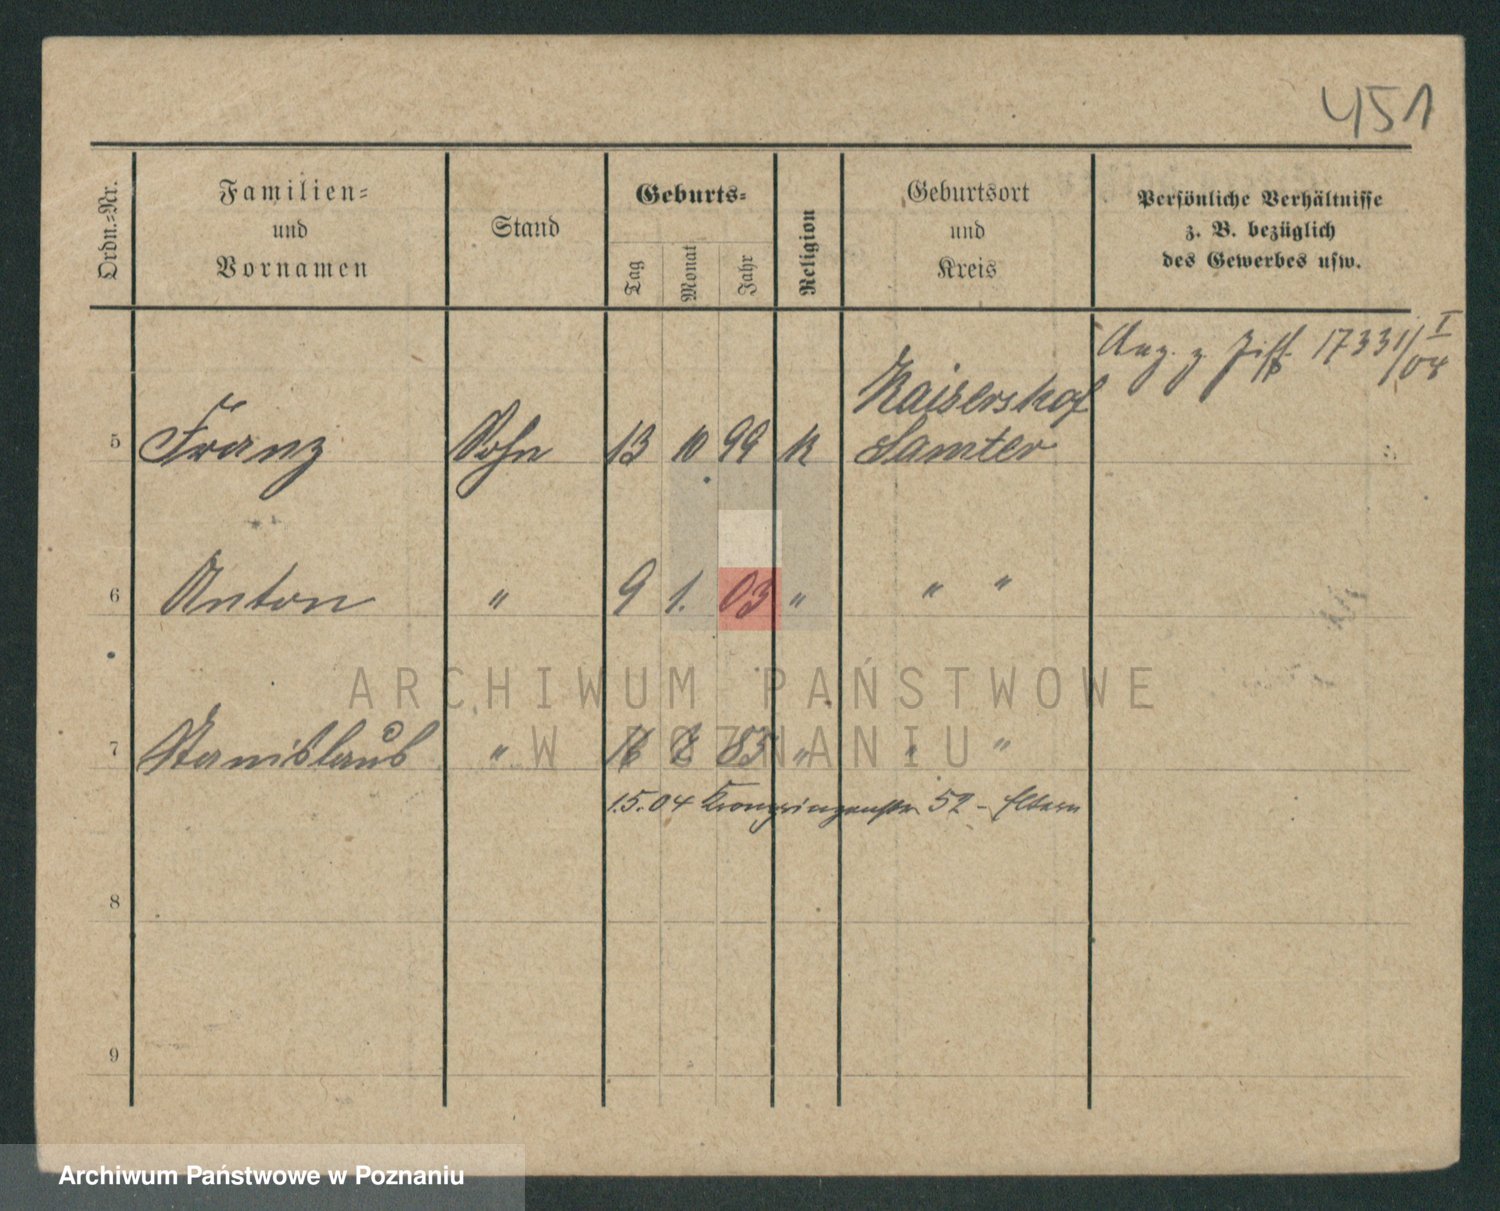 451
Ordn.-Nr.
Familien-
und
Vornamen
Stand
Geburts-
Tag
Monat
Jahr
Religion
Geburtsort
und
Kreis
Persönliche Verhältnisse
z. B. bezüglich
des Gewerbes usw.
Anz. z. Ziff. 17331/I 04
Kaisershof
5 Franz Sohn 13 10 99 k Samter
6 Anton " 9 1. 03 " " "
ARCHIWUM PAŃSTWOWE
W POZNANIU
7 Stanislaus " 16 83 " " "
1.5.04 Kronprinzenstr. 52 - Eltern
8
9
Archiwum Państwowe w Poznaniu